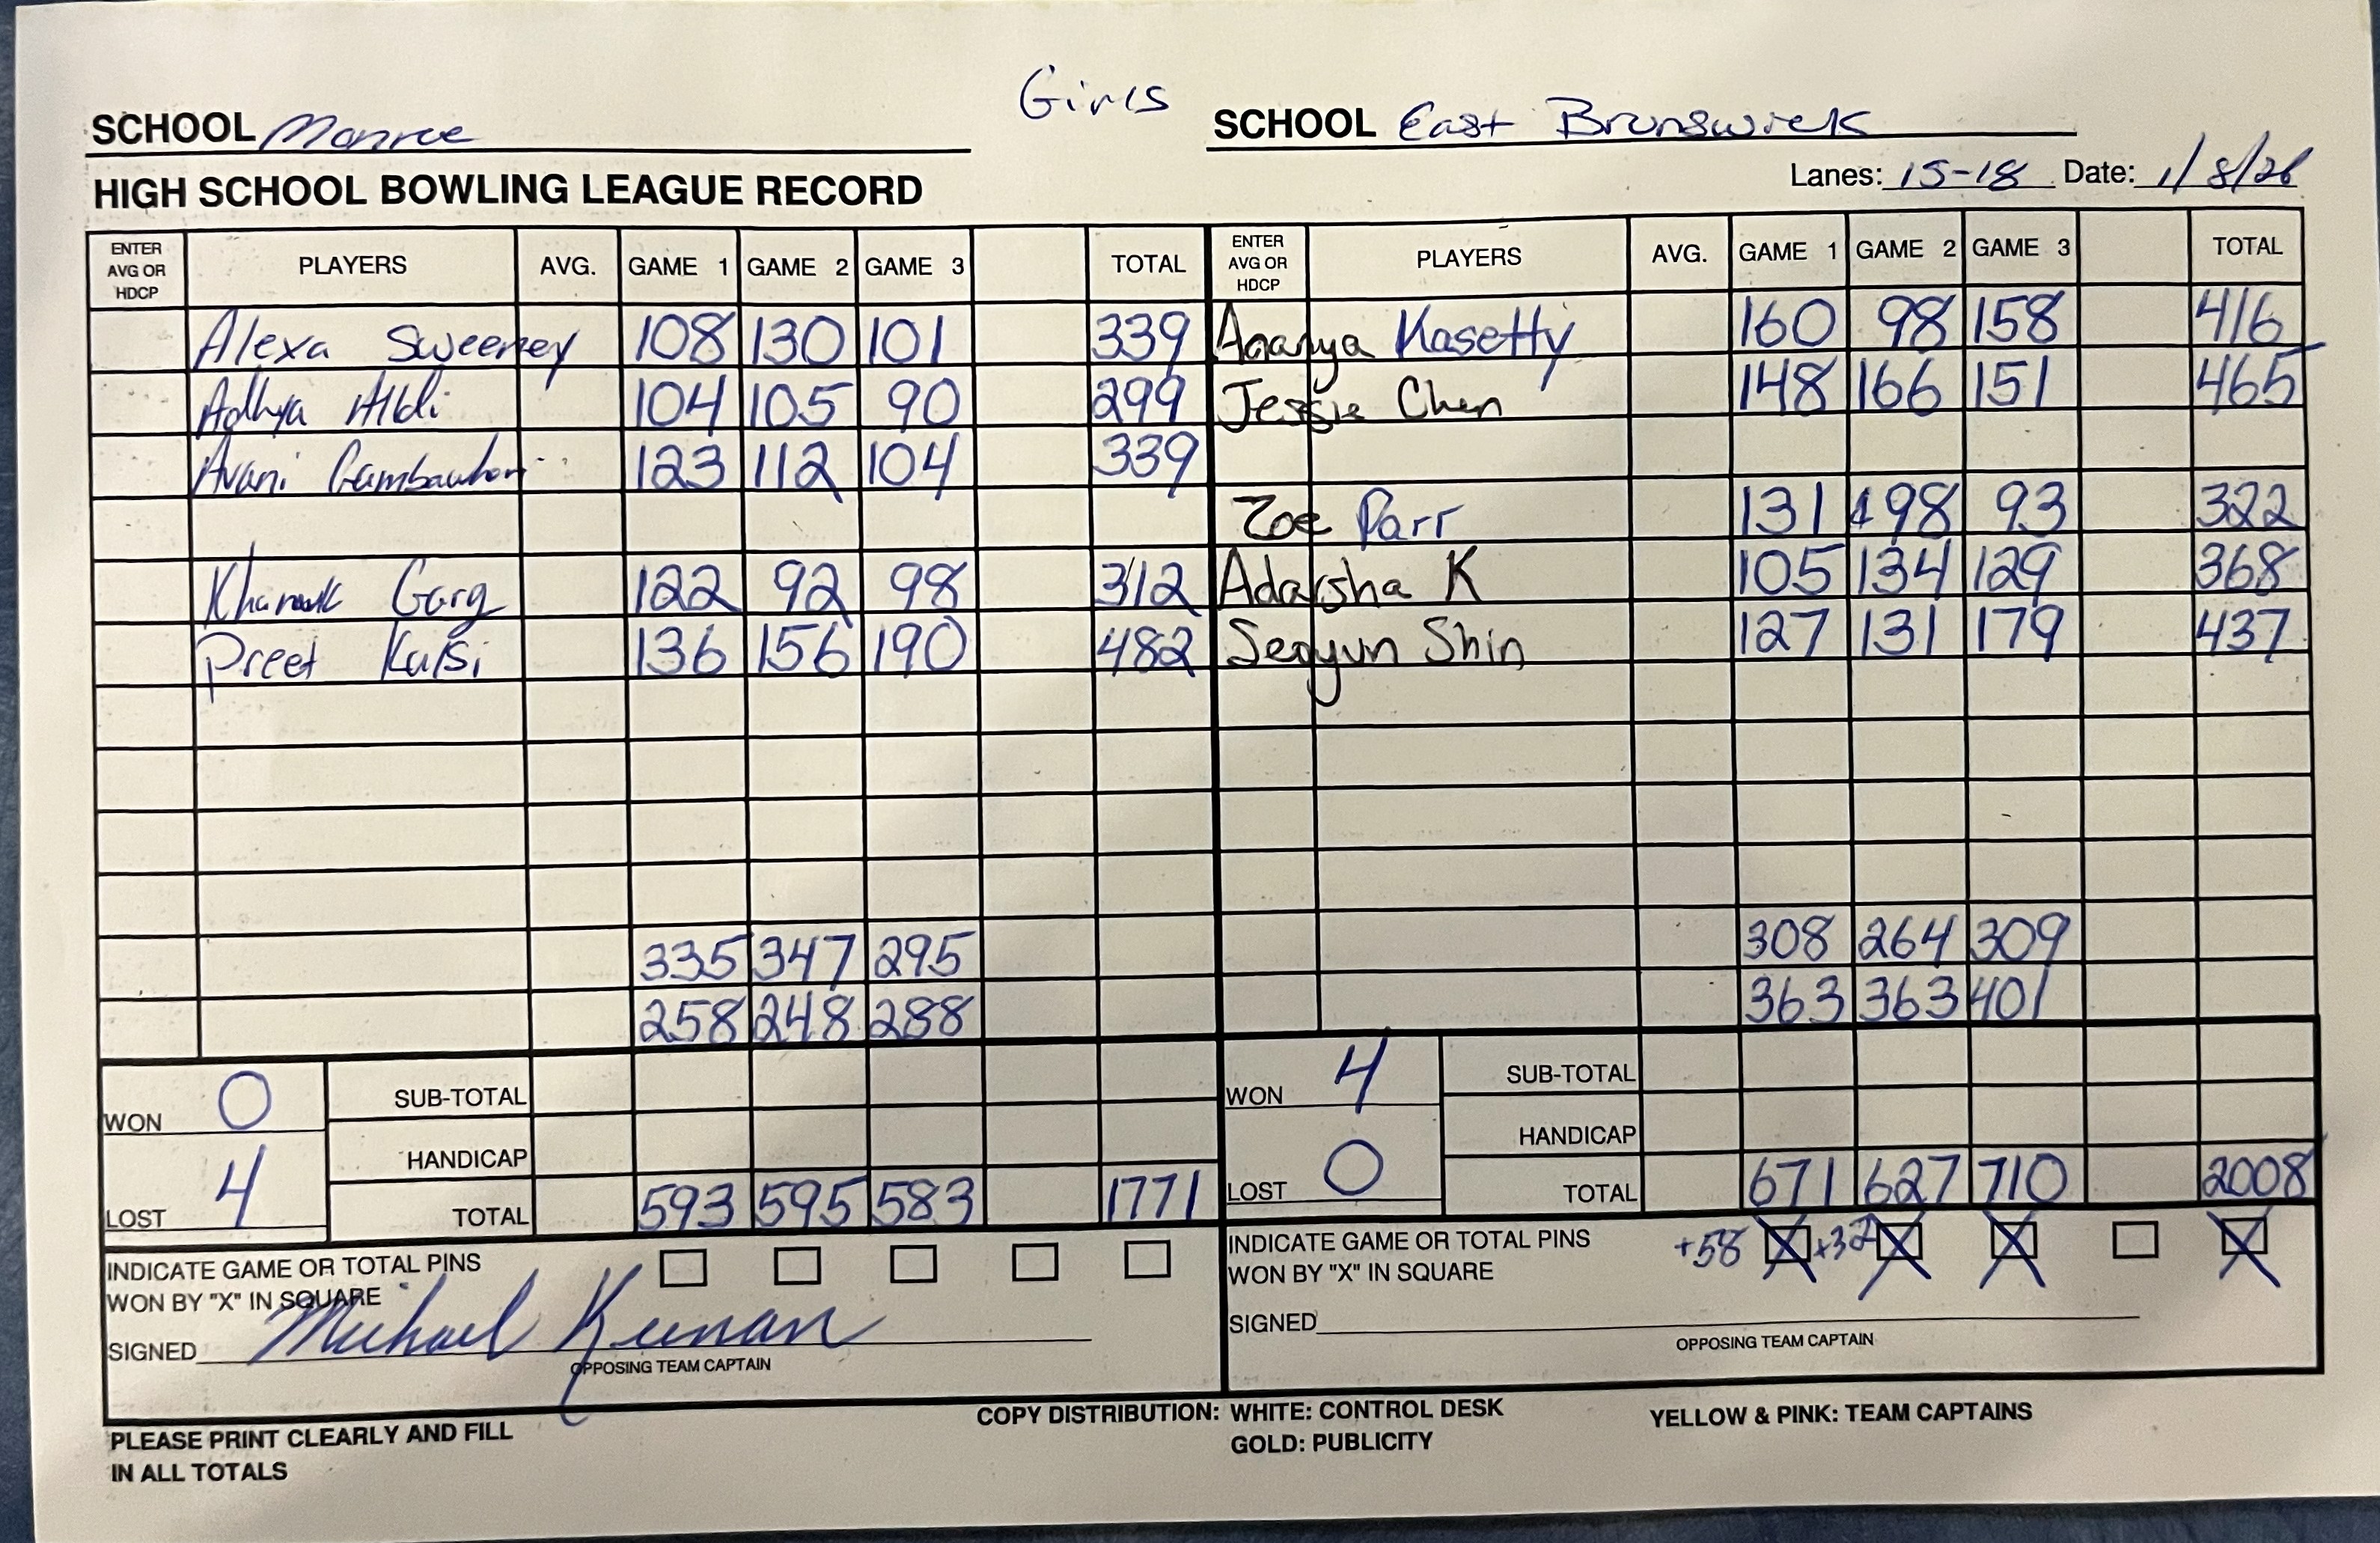 Girls
SCHOOL Monroe SCHOOL East Brunswick
HIGH SCHOOL BOWLING LEAGUE RECORD Lanes: 15-18 Date: 1/8/26
ENTER AVG OR HDCP PLAYERS AVG. GAME 1 GAME 2 GAME 3 TOTAL ENTER AVG OR HDCP PLAYERS AVG. GAME 1 GAME 2 GAME 3 TOTAL
Alexa Sweeney 108 130 101 339 Ananya Kasetty 160 98 158 416
Adhya 104 105 90 299 Jessie Chen 148 166 151 465
Avani 123 112 104 339
Zoe Parr 131 98 93 322
Garg 122 92 98 312 Adarsha K 105 134 129 368
Preet Kalsi 136 156 190 482 Seoyun Shin 127 131 179 437
335 347 295 308 264 309
258 248 288 363 363 401
WON 0 SUB-TOTAL WON 4 SUB-TOTAL
HANDICAP HANDICAP
LOST 4 TOTAL 593 595 583 1771 LOST 0 TOTAL 671 627 710 2008
INDICATE GAME OR TOTAL PINS INDICATE GAME OR TOTAL PINS +58 X +32 X X X
WON BY "X" IN SQUARE WON BY "X" IN SQUARE
SIGNED Michael Keenan SIGNED
OPPOSING TEAM CAPTAIN OPPOSING TEAM CAPTAIN
PLEASE PRINT CLEARLY AND FILL COPY DISTRIBUTION: WHITE: CONTROL DESK YELLOW & PINK: TEAM CAPTAINS
IN ALL TOTALS GOLD: PUBLICITY